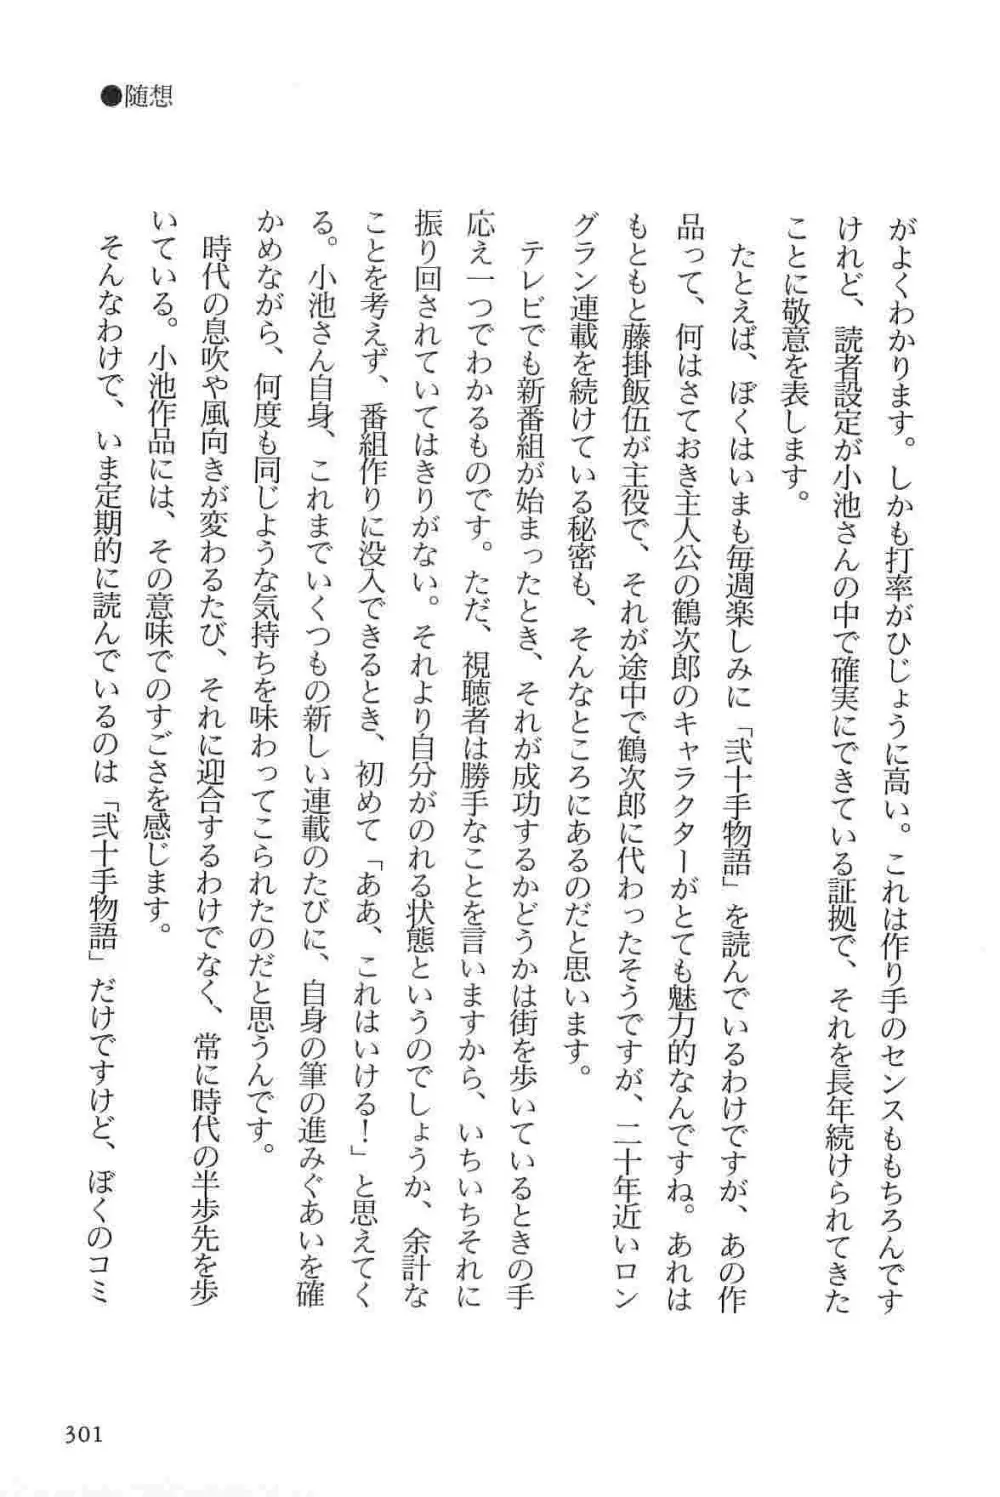 ●随想
がよくわかります。しかも打率がひじょうに高い。これは作り手のセンスももちろんです
けれど、読者設定が小池さんの中で確実にできている証拠で、それを長年続けられてきた
ことに敬意を表します。
たとえば、ぼくはいまも毎週楽しみに「弐十手物語」を読んでいるわけですが、あの作
品って、何はさておき主人公の鶴次郎のキャラクターがとても魅力的なんですね。あれは
もともと藤掛飯伍が主役で、それが途中で鶴次郎に代わったそうですが、二十年近いロン
グラン連載を続けている秘密も、そんなところにあるのだと思います。
テレビでも新番組が始まったとき、それが成功するかどうかは街を歩いているときの手
応え一つでわかるものです。ただ、視聴者は勝手なことを言いますから、いちいちそれに
振り回されていてはきりがない。それより自分がのれる状態というのでしょうか、余計な
ことを考えず、番組作りに没入できるとき、初めて「ああ、これはいける！」と思えてく
る。小池さん自身、これまでいくつもの新しい連載のたびに、自身の筆の進みぐあいを確
かめながら、何度も同じような気持ちを味わってこられたのだと思うんです。
時代の息吹や風向きが変わるたび、それに迎合するわけでなく、常に時代の半歩先を歩
いている。小池作品には、その意味でのすごさを感じます。
そんなわけで、いま定期的に読んでいるのは「弐十手物語」だけですけど、ぼくのコミ
301